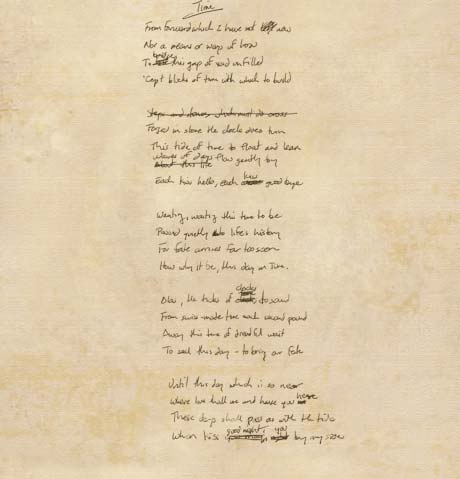 Time
From forward which I have not now
Nor a means or way of how
To bridge this gap of void unfilled
'Cept blocks of time with which to build
Steps and stones which must do cross
Forged in stone the clock does turn
This tide of time to float and learn
waves of days flow gently by
Each kiss hello, each kiss goodbye
Wanting, waiting this time to be
Passed quietly to life's history
For fate arrives far too soon
How why it be, this day in June.
Alas, the ticks of clocks do sound
From swiss-made time each second pound
Away this time of dreadful wait
To seal this day - to bring our fate
Until this day which is so near
Where we shall we and have you here
These days shall pass as with the tide
When kiss goodnight, you by my side